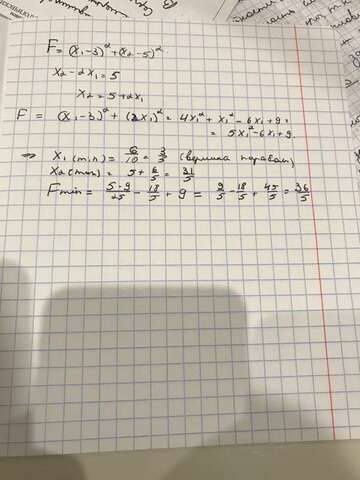 F = (x₁-3)² + (x₂-5)²
x₂ - 2x₁ = 5
x₂ = 5 + 2x₁
F = (x₁-3)² + (2x₁)² = 4x₁² + x₁² - 6x₁ + 9 =
= 5x₁² - 6x₁ + 9.
=> x₁(min) = 6/10 = 3/5 (вершина параболы)
x₂(min) = 5 + 6/5 = 31/5
Fmin = 5·9/25 - 18/5 + 9 = 9/5 - 18/5 + 45/5 = 36/5